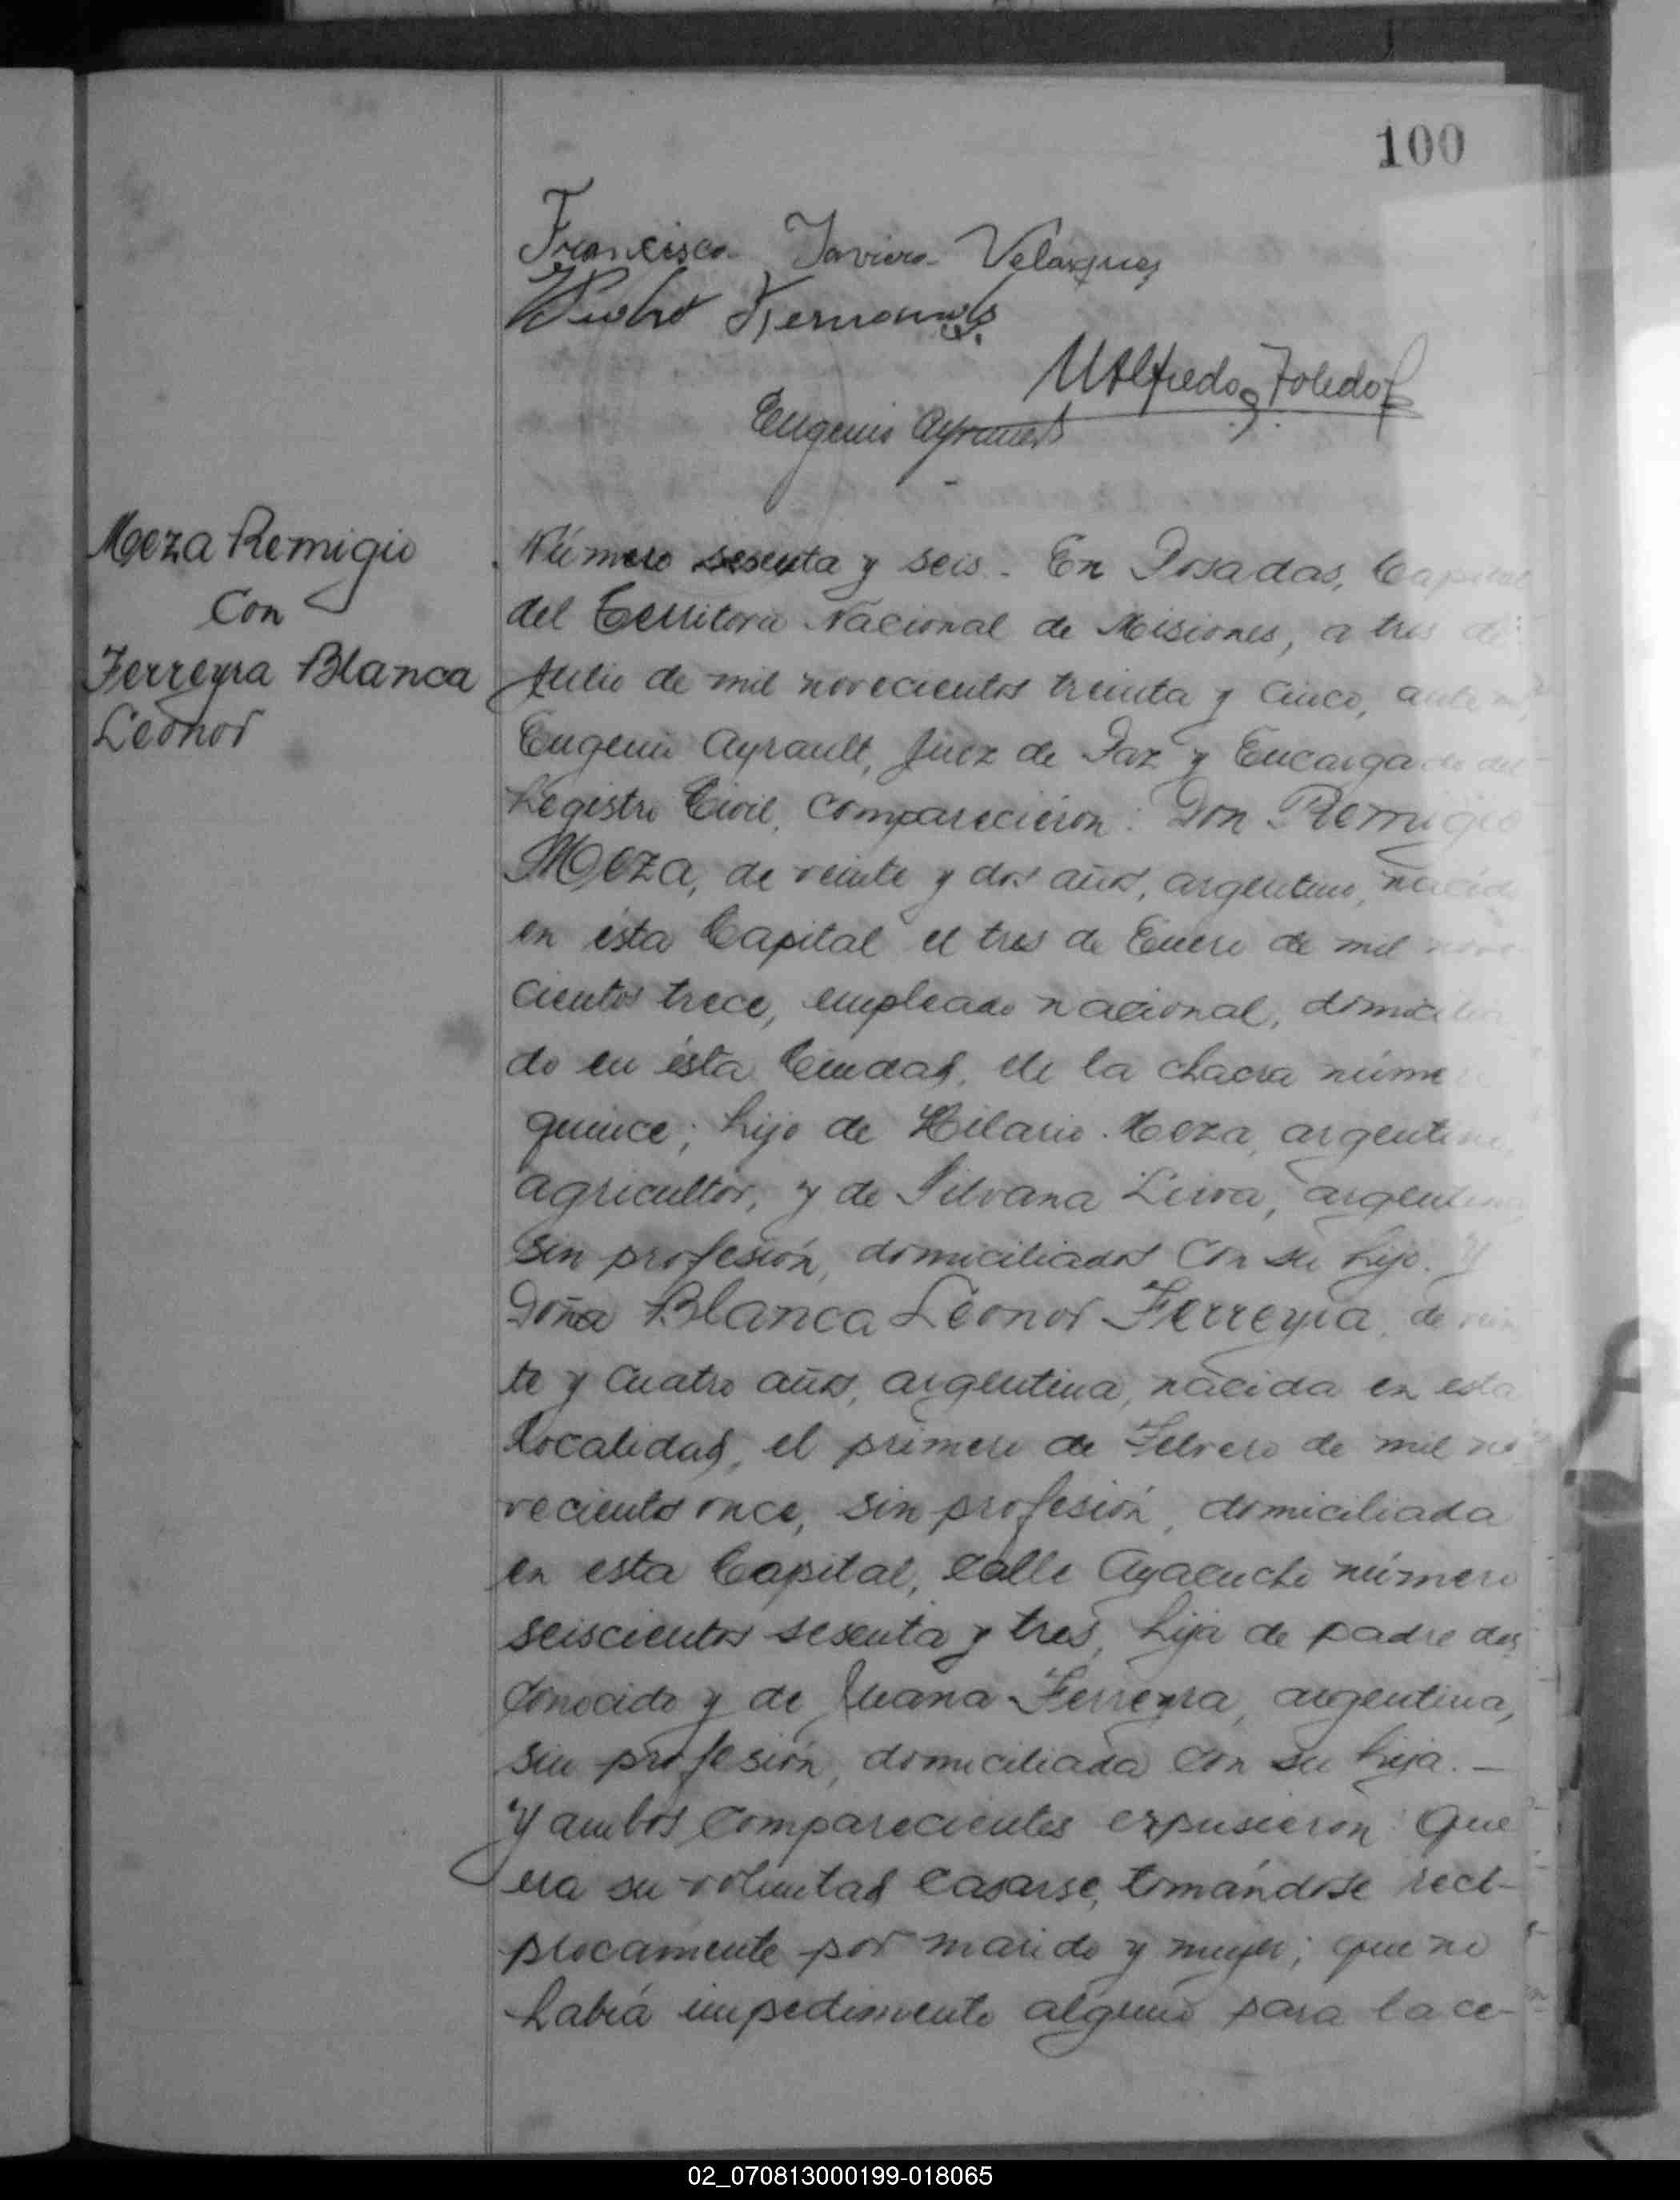 100
Francisco Javier Velazquez
Pedro Fernandez
Alfredo Toledo
Eugenio Ayrault
Meza Remigio
Con
Ferreyra Blanca
Leonor
Número sesenta y seis. En Posadas, Capital
del Territorio Nacional de Misiones, a tres de
Julio de mil novecientos treinta y cinco, ante mí,
Eugenio Ayrault, Juez de Paz y Encargado del
Registro Civil, comparecieron: Don Remigio
Meza, de veinte y dos años, argentino, nacido
en ésta Capital el tres de Enero de mil nove-
cientos trece, empleado nacional, domicilia
do en ésta Ciudad, de la chacra número
quince; hijo de Hilario Meza, argentino,
agricultor, y de Silvana Leiva, argentina,
sin profesión, domiciliados con su hijo. Y
Doña Blanca Leonor Ferreyra, de vein
te y cuatro años, argentina, nacida en esta
localidad, el primero de Febrero de mil no
vecientos once, sin profesión, domiciliada
en esta Capital, calle Ayacucho número
seiscientos sesenta y tres, hija de padre des
conocido y de Juana Ferreyra, argentina,
sin profesión, domiciliada con su hija. —
Y ambos comparecientes expusieron: Que
era su voluntad casarse, tomándose recí-
procamente por marido y mujer; que no
había impedimento alguno para la ce-
02_070813000199-018065